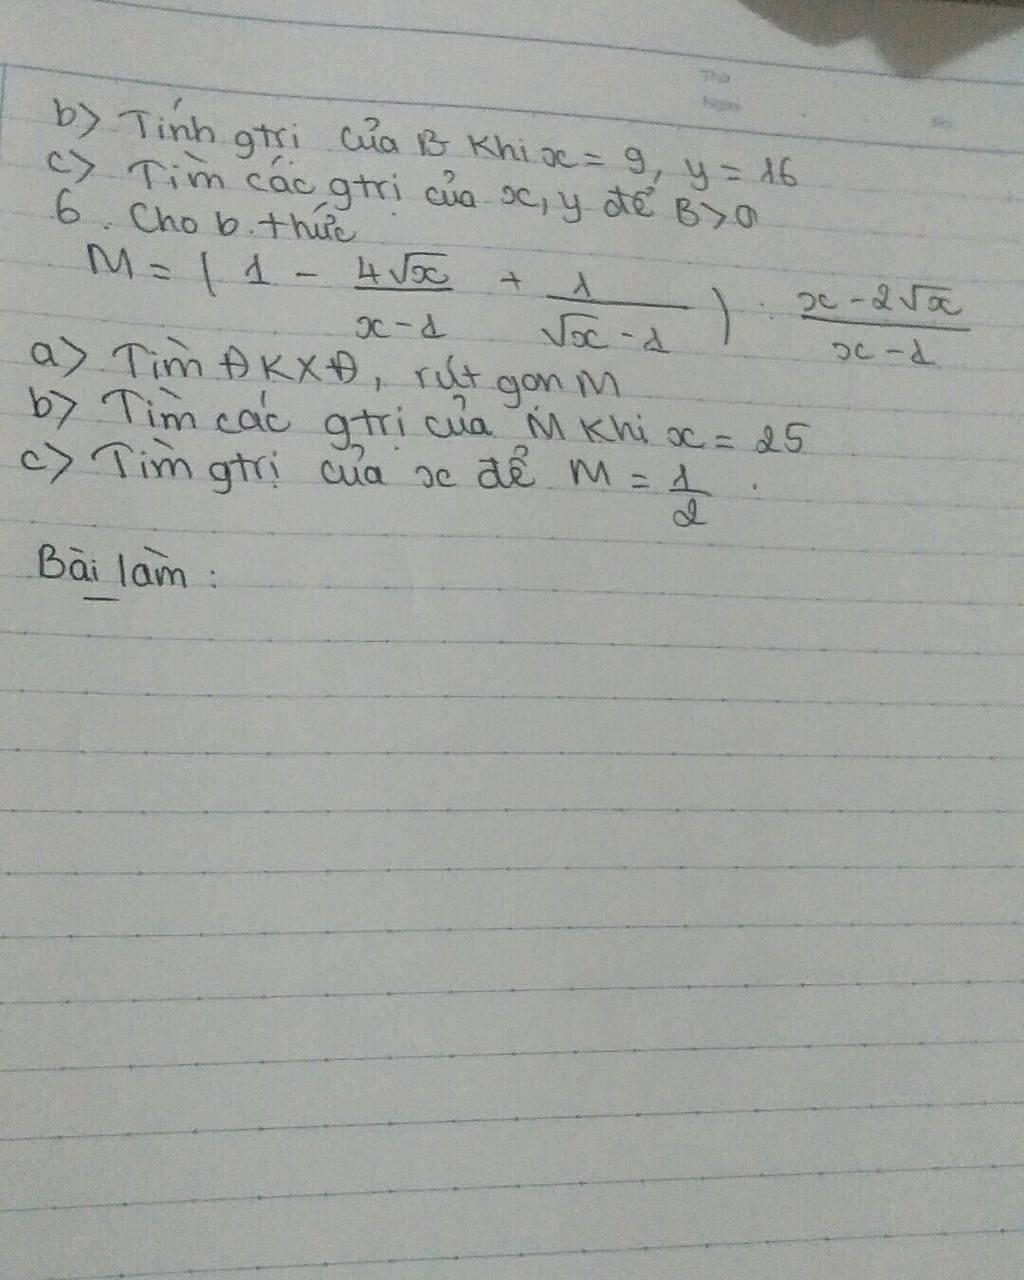 Thứ
Ngày
b) Tính gtri của B khi x = 9, y = 16
c) Tìm các gtrị của x, y để B > 0
6. Cho b. thức
M = ( 1 - 4√x / x - 1 + 1 / √x - 1 ) : x - 2√x / x - 1
a) Tìm ĐKXĐ, rút gọn M
b) Tìm các gtrị của M khi x = 25
c) Tìm gtrị của x để M = 1/2 .
Bài làm :